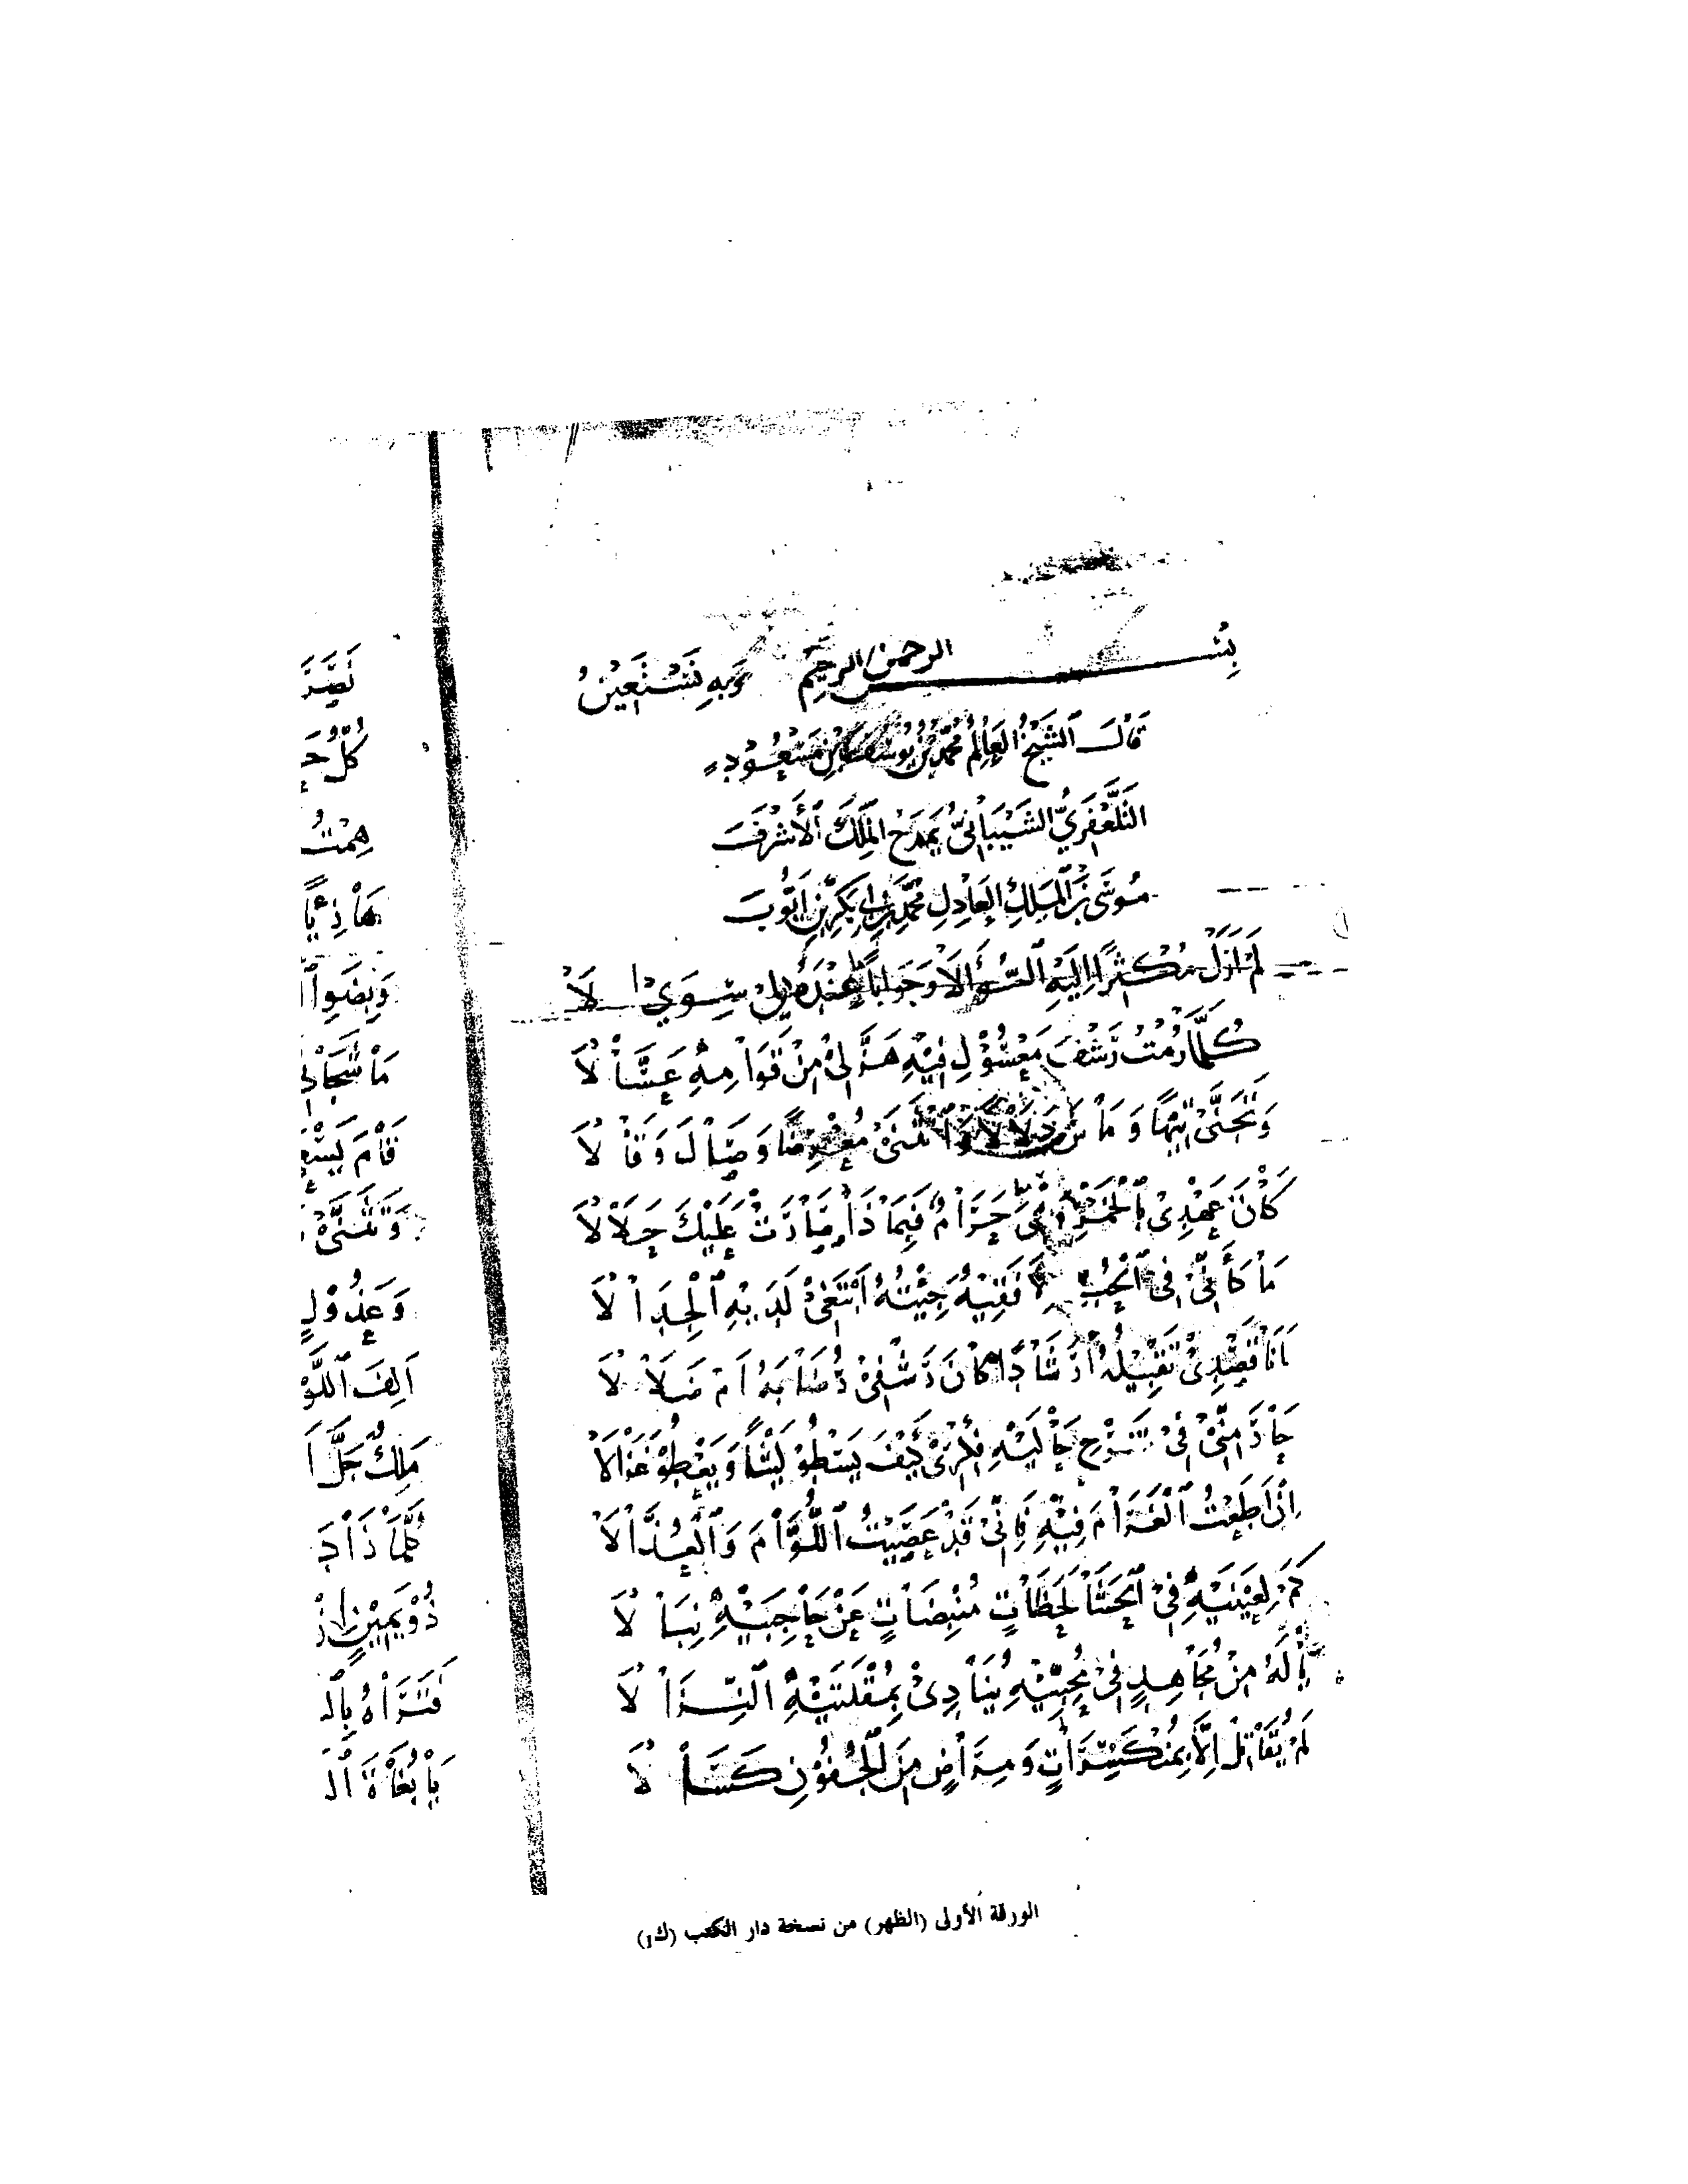 بِسْــــم الرحمن الرحيم وَبِهِ نَسْتَعِينُ
قَالَ ٱلشَّيْخُ العَالِمُ مُحَمَّدُ بْنُ يُوسُفَ بْنِ مَسْعُوْدِ
التَّلَّعْفَرِيُّ الشَيْبَانِيُّ يَمْدَحُ المَلِكَ ٱلأَشْرَفَ
مُوسَى بْنَ ٱلمَلِكِ العَادِلِ مُحَمَّدِ بْنِ أَبِي بَكْرِ بْنِ أَيُّوبَ
لَمْ أَزَلْ مُكْثِرًا إِلَيْهِ ٱلسُّؤَالَا وَجَوَابًا عِنْدَهُ لِي سِوَى لَا
كُلَّمَا رُمْتُ رَشْفَ مَعْسُوْلِ فِيْهِ هَزَّ لِيْ مِنْ قَوَامِهِ عَسَّالَا
وَتَجَنَّىْ تِيْهًا وَمَاسَ دَلَالًا وَٱنْثَنَىْ مُعْرِضًا وَصَالَ وَقَالَا
كَانَ عَهْدِيْ بِٱلْخَمْرِ وَهْيَ حَرَامٌ فَبِمَاذَا صَارَتْ عَلَيْكَ حَلَالَا
مَا كَأَنِّيْ فِيْ ٱلْحُبِّ إِلَّا فَقِيْهٌ جِئْتُهُ أَبْتَغِيْ لَدَيْهِ ٱلْجِدَالَا
أَنَا قَصْدِيْ تَقْبِيْلُهُ أَرَشَادًا كَانَ رَشْفِيْ رُضَابَهُ أَمْ ضَلَالَا
حَاذَ مِنِّيْ فِيْ حَالَتَيْهِ فِكْرِيْ كَيْفَ يَسْطُوْ لَيْثًا وَيَعْطُوْ غَزَالَا
إِنْ أَطَعْتُ ٱلْغَرَامَ فِيْهِ فَإِنِّيْ قَدْ عَصَيْتُ ٱللُّوَّامَ وَٱلْعُذَّالَا
كَمْ لِعَيْنَيْهِ فِيْ ٱلْحَشَا لَحَظَاتٍ مُنْبِضَاتٍ عَنْ حَاجِبَيْهِ نِبَالَا
يَا لَهُ مِنْ مُجَاهِدٍ فِيْ مُحِبِّيْهِ يُنَادِيْ بِمُقْلَتَيْهِ ٱلنِّزَالَا
لَمْ يُقَاتِلْ إِلَّا بِمُنْكَسِرَاتٍ وَمِرَاضٍ مِنَ ٱلْجُفُوْنِ كَسَالَا
كُلّ
هِمْتُ
فَقَامَ
وَعَذُوْلٍ
أَلِفَ
مَلِكٌ جَلَّ
كُلَّمَا ذَادَ
ذُوْ يَمِيْنٍ
فَتَرَاهُ
يَا بُغَاةَ
الورقة الأولى (الظهر) من نسخة دار الكتب (ك١)